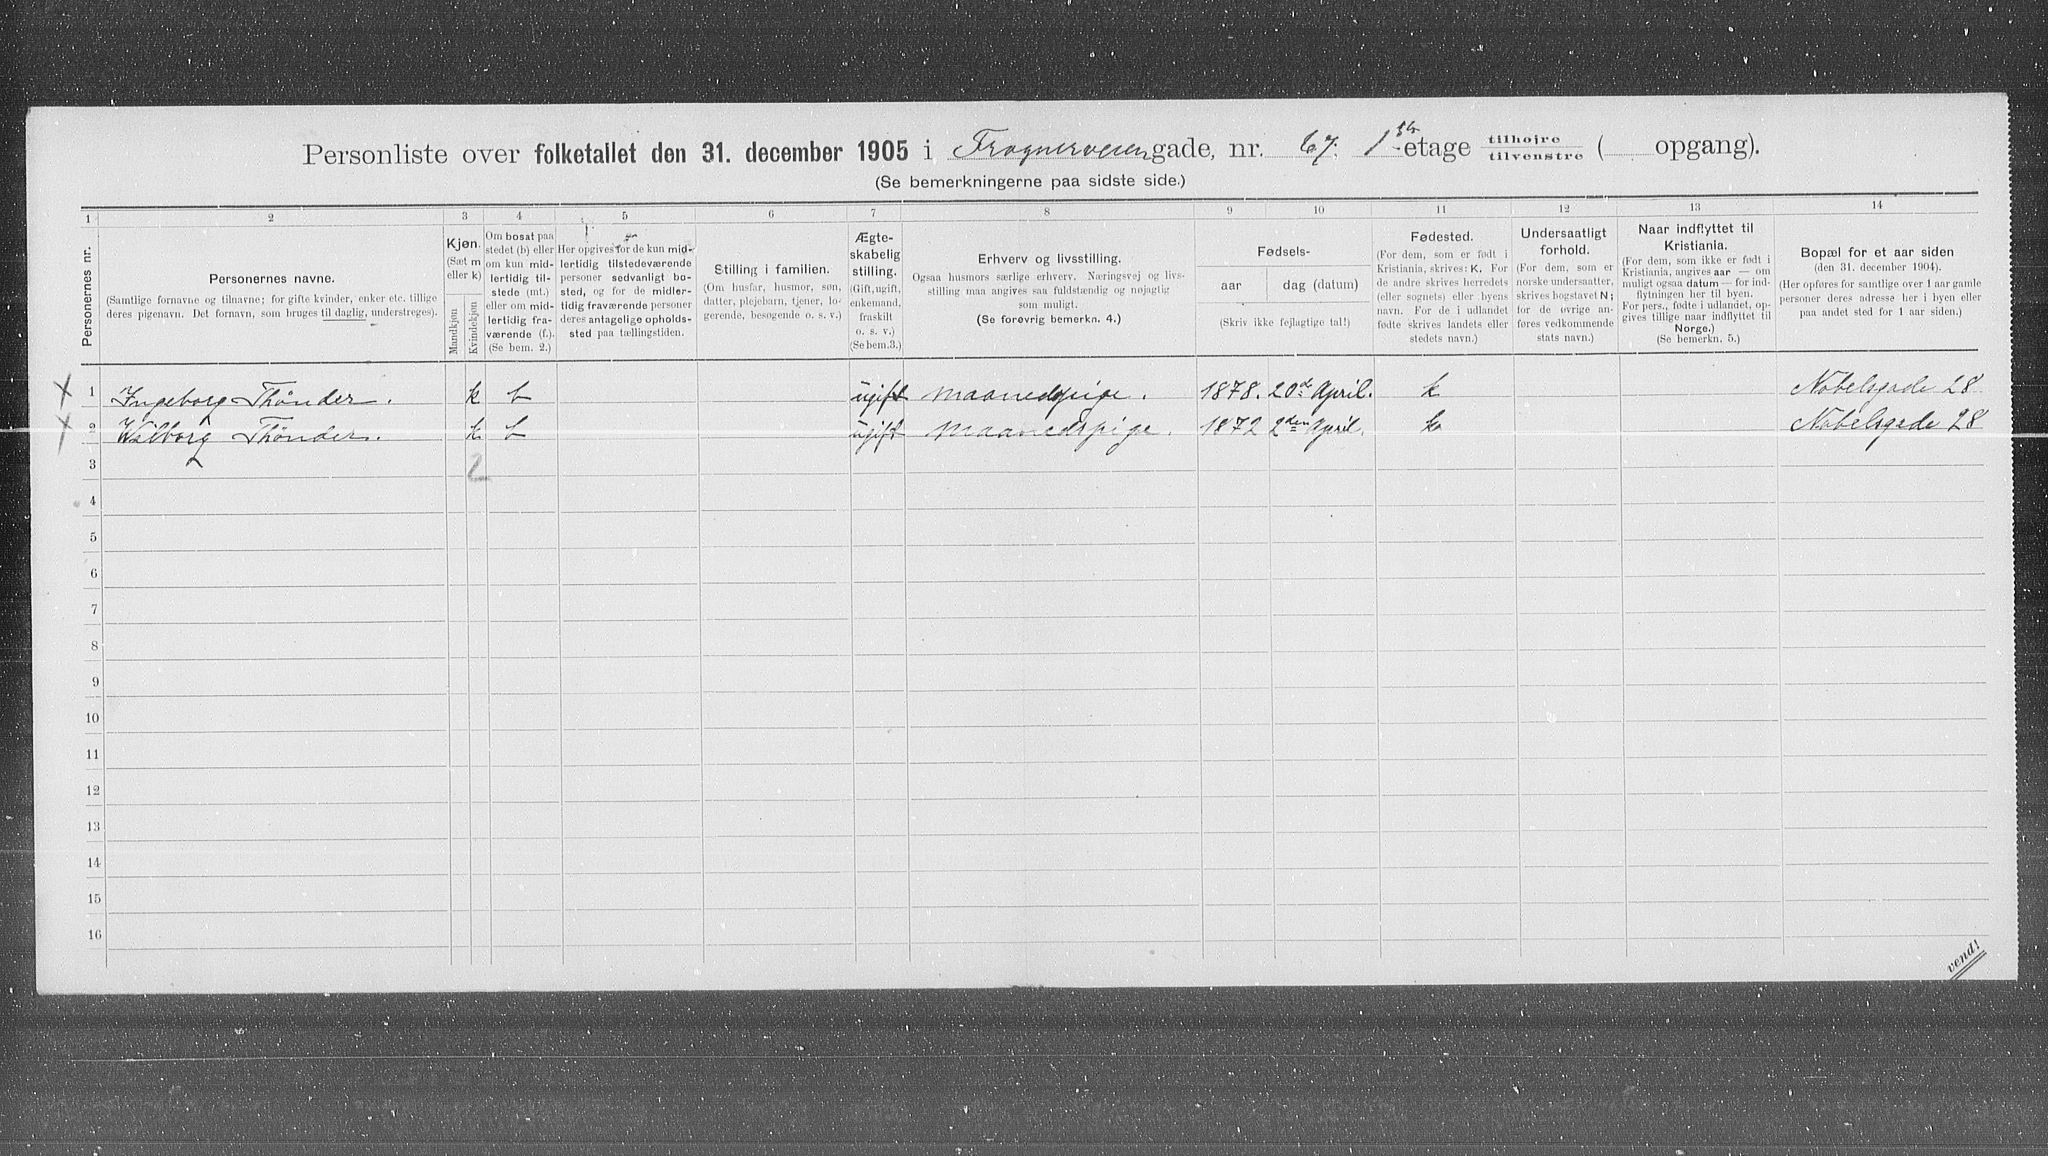 Personliste over folketallet den 31. december 1905 i Frognerveien gade, nr. 67. 1ste etage tilhøjre tilvenstre ( opgang).
(Se bemerkningerne paa sidste side.)
1 2 3 4 5 6 7 8 9 10 11 12 13 14
Personernes nr.
Personernes navne.
(Samtlige fornavne og tilnavne; for gifte kvinder, enker etc. tillige
deres pigenavn. Det fornavn, som bruges til daglig, understreges).
Kjøn.
(Sæt m
eller k)
Mandkjøn
Kvindekjøn
Om bosat paa
stedet (b) eller
om kun mid-
lertidig til-
stede (mt.)
eller om mid-
lertidig fra-
værende (f.).
(Se bem. 2.)
Her opgives for de kun mid-
lertidig tilstedeværende
personer sedvanligt bo-
sted, og for de midler-
tidig fraværende personer
deres antagelige opholds-
sted paa tællingstiden.
Stilling i familien.
(Om husfar, husmor, søn,
datter, plejebarn, tjener, lo-
gerende, besøgende o. s. v.)
Ægte-
skabelig
stilling.
(Gift, ugift,
enkemand,
fraskilt
o. s. v.)
(Se bem.3.)
Erhverv og livsstilling.
Ogsaa husmors særlige erhverv. Næringsvej og livs-
stilling maa angives saa fuldstændig og nøjagtig
som muligt.
(Se forøvrig bemerkn. 4.)
Fødsels-
aar dag (datum)
(Skriv ikke fejlagtige tal!)
Fødested.
(For dem, som er født i
Kristiania, skrives: K. For
de andre skrives herredets
(eller sognets) eller byens
navn. For de i udlandet
fødte skrives landets eller
stedets navn.)
Undersaatligt
forhold.
(For dem, som er
norske undersaatter,
skrives bogstavet N;
for de øvrige an-
føres vedkommende
stats navn.)
Naar indflyttet til
Kristiania.
(For dem, som ikke er født i
Kristiania, angives aar — om
muligt ogsaa datum — for ind-
flytningen her til byen.
For pers., fødte i udlandet, op-
gives tillige naar indflyttet til
Norge.)
(Se bemerkn. 5.)
Bopæl for et aar siden
(den 31. december 1904).
(Her opføres for samtlige over 1 aar gamle
personer deres adresse her i byen eller
paa andet sted for 1 aar siden.)
1 Ingeborg Thönder. k b ugift maanedspige. 1878. 20de April. k Nobelsgade 28
2 Walborg Thönder. k b ugift maanedspige. 1872 2den April. k Nobelsgade 28
3 2
4
5
6
7
8
9
10
11
12
13
14
15
16
vend!